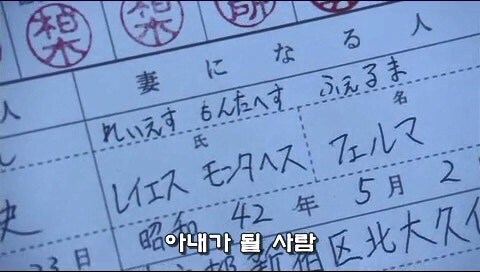 妻になる人
人
れいえす もんたへす ふぇるま
氏 名
レイエス モンタヘス フェルマ
史
昭和 42 年 5 月 2
日
都新宿区北大久
아내가 될 사람